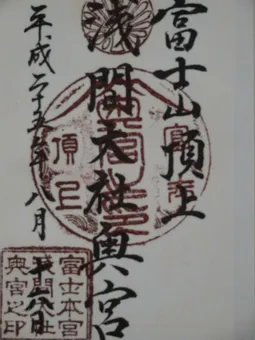 富士山頂上
浅間大社奥宮
平成二十五年八月
十八日
頂上
富士本宮
浅間大社
奥宮之印